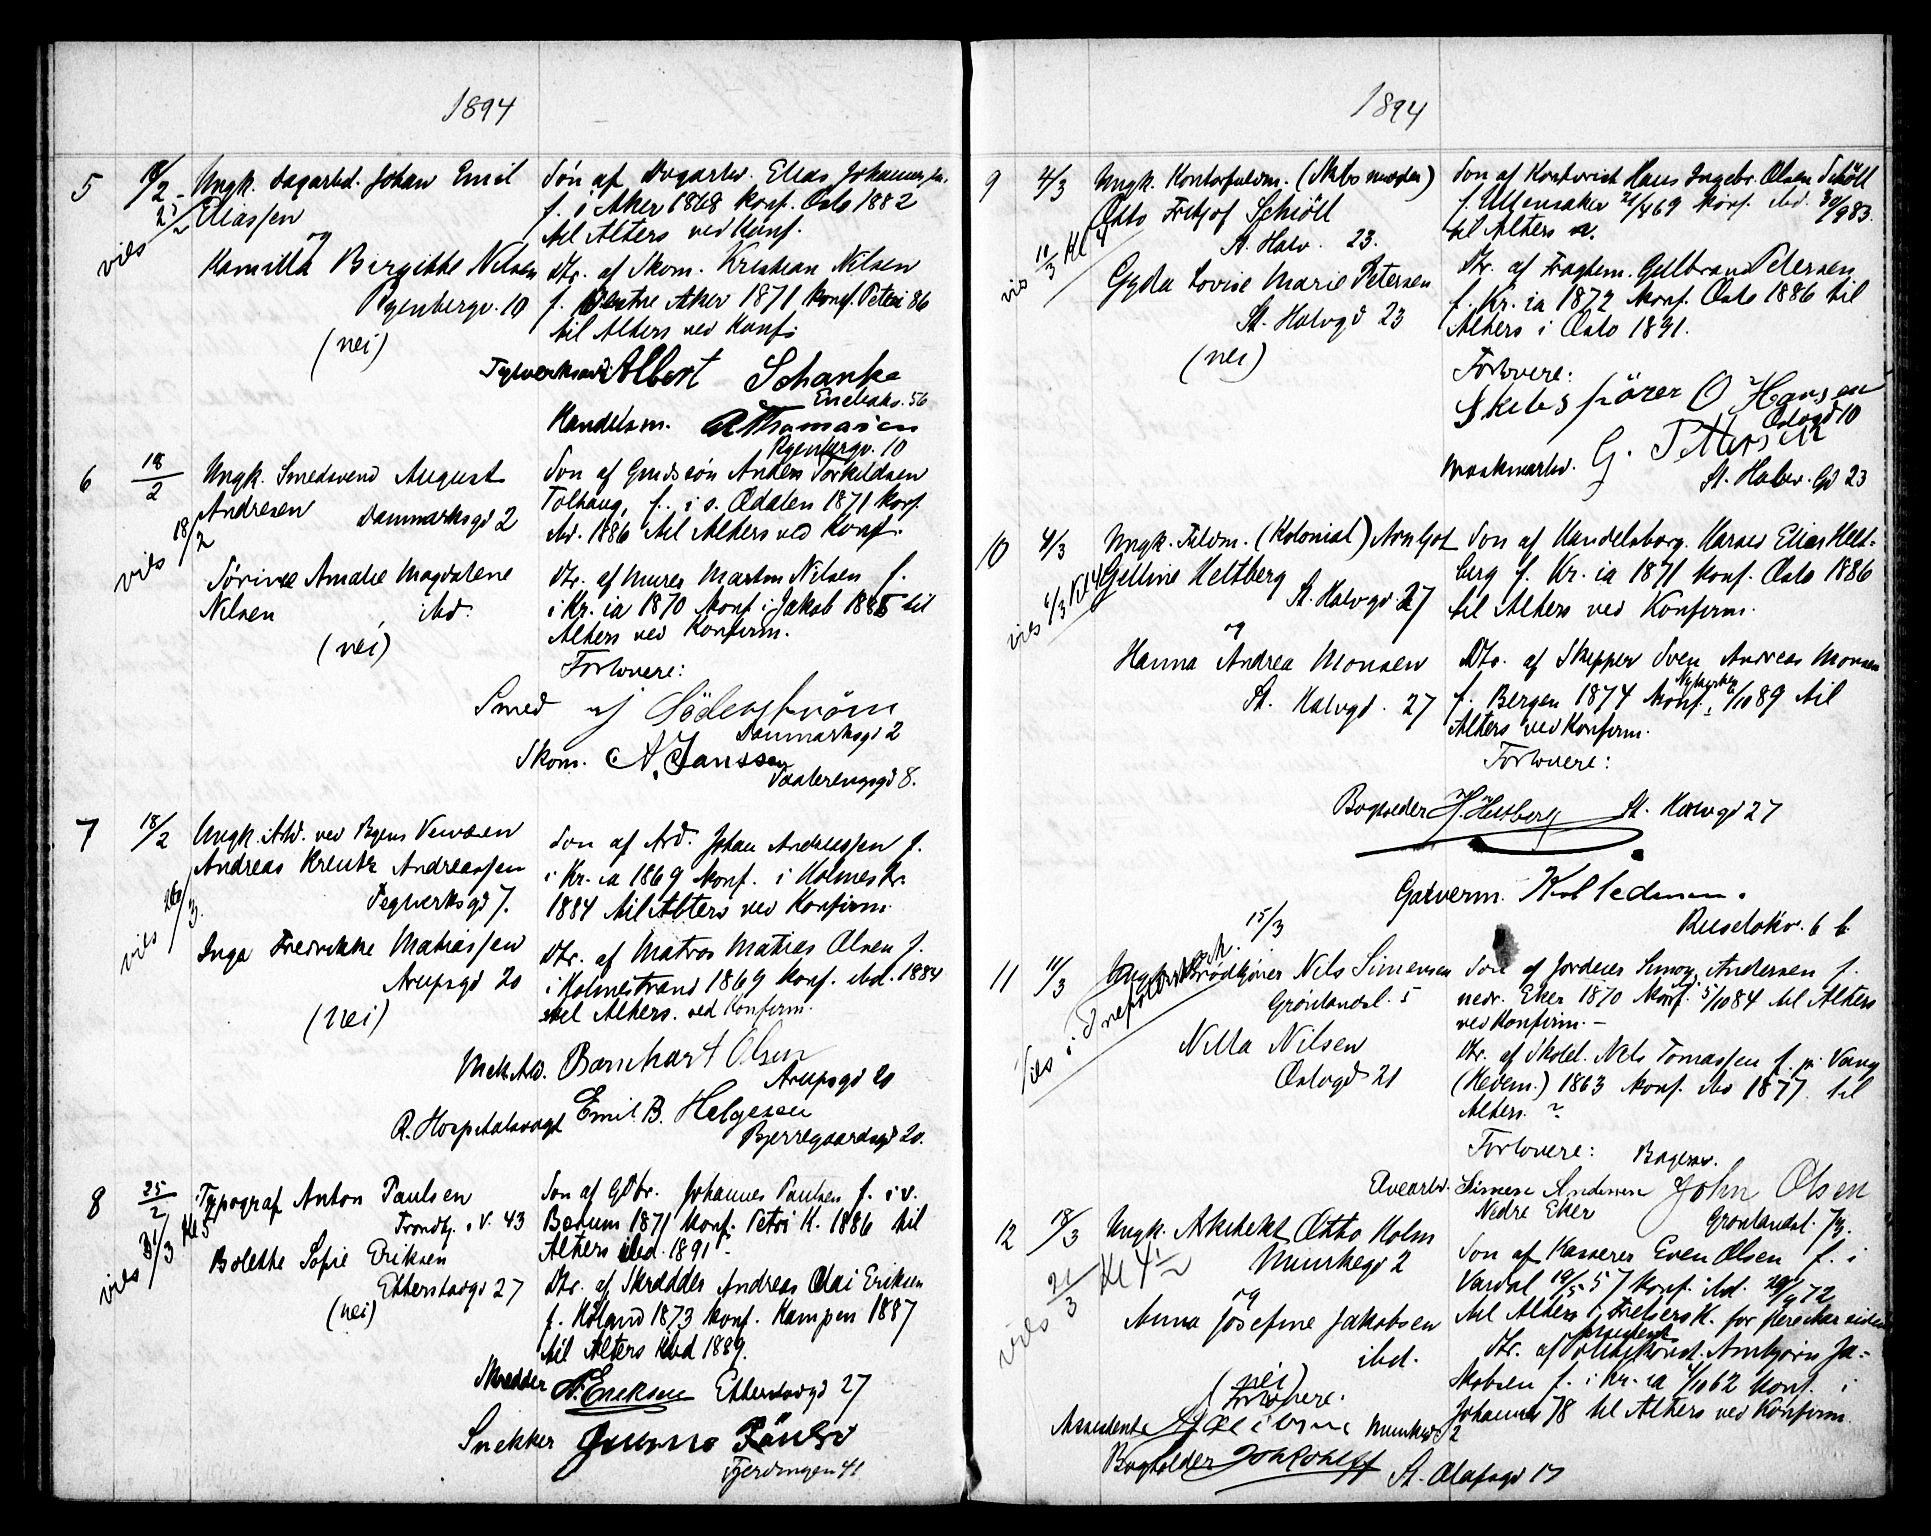 1894
5 18/2 - Ungk. Dagarbd. Johan Emil
Eliassen
viet 25/2
og
Kamilla Birgitte Nilsen
Ryenbergv. 10
(nei)
Søn af Dagarbd. Elias Johannessen,
f. i Aker 1868 konf. Oslo 1882
til Alters ved Konf.
Dtr. af Skom. Kristian Nilsen
f. Vestre Aker 1871 konf. Petri 86
til Alters ved Konf:
Albert Schanke
Enebakv. 56
Handelsm. A Thomasen
Ryenbergv. 10
6 18/2 Ungk. Smedsvend August
Andresen Danmarksgd 2
viès 18/2
Sørine Amalie Magdalene
Nilsen ibd.
(nei)
Søn af Grdsøn Anders Torkildsen
Tolhaug, f. i s. Odalen 1871 konf.
ibd. 1886 til Alters ved Konf.
Dtr. af Murer Martin Nilsen f.
i Kr.ia 1870 konf. i Jakob 1885 til
Alters ved Konfirm.
Forlovere:
Smed Söderström
Danmarksgd 2
Skom. A. Janssen
Vaalerengsgd 8.
7 18/2 Ungk. Arbd. ved Byens Veivæsen
Andreas Kreutz Andreassen
Teglverksgd 7.
viès 26/3.
Inga Fredrikke Matiassen
Arupsgd 20
(nei)
Søn af Arb. Johan Andreassen f.
i Kr.ia 1869 konf. i Holmestr.
1884 til Alters ved Konfirm.
Dtr. af Matros Matias Olsen f.
i Holmestrand 1869 konf. ibd. 1884
til Alters. ved Konfirm.
Mek. Arb. Bernhart Olsen
Arupsgd 20
R. Hospitalsvogt Emil B. Helgesen
Bjerregaardsgd 20.
8 25/2 Typograf Anton Paulsen
Trondhj.v. 43
viès 31/3 Kl 5
Bolethe Sofie Eriksen
Etterstadgd 27
(nei)
Søn af Gbr. Johannes Paulsen f. i v.
Bærum 1871 konf. Petri K. 1886 til
Alters ibd. 1891 -
Dtr. af Skrædder Andreas Olai Eriksen
f. Høland 1873 konf. Kampen 1887
til Alters ibd 1889.
Skrædder A. Eriksen Etterstadgd 27
Snekker
Fjerdingen 41
1894
9 4/3 Ungk. Kontorfuldm. (Skibsmægler)
Otto Fritjof Schiöll
St. Halv. 23.
vies 10/3 Kl 4
Gyda Lovise Marie Petersen
St. Halvgd 23
(nei)
Søn af Kontorist Hans Ingebr. Olsen Schöll
f. Ullensaker 21/4 69 konf. ibd. 30/9 83.
til Alters
Dtr. af Fragtem. Gulbrand Petersen
f. Kr.ia 1872 konf. Oslo 1886 til
Alters i Oslo 1891.
Forlovere:
Skibsfører O Hansen
Oslogd 10
Maskinarbd. G. Pettersen
St. Halv. Gd 23
10 4/3 Ungk. Fuldm. (Kolonial) Arnljot
Gelline Heltberg
St. Halvgd 27
viès 6/3 Kl 4
og
Hanna Andrea Monsen
St. Halvgd. 27
Søn af Handelsborg. Harald Elias Helt-
berg f. Kr.ia 1871 konf. Oslo 1886
til Alters ved Konfirm.
Dtr. af Skipper Sven Andreas Monsen
f. Bergen 1874 konf. Nykirken 1/10 89 til
Alters ved Konfirm.
Forlovere:
Bogholder H. Heltberg St. Halvgd 27
Gartnerm.
Ruseløkv. 6 b
15/3
11 11/3 Ungk. Brødkjører Nils Simensen
Grønlandsl. 5
Viès i Trefoldighedsk.
Nilla Nilsen
Oslogd 21
Søn af Jordeier Simon Andersen f.
nedr. Eker 1870 konf. 5/10 84 til Alters
ved Konfirm. -
Dtr. af Skolel. Nils Tomassen f. på Vang
(Hedem.) 1863 konf. ibd 1877. til
Alters. ?
Forlovere: Bagersv.
Elvearbd. Simen Andersen John Olsen
Nedre Eker Grønlandsl. 73.
12 18/3 Ungk. Arkitekt Otto Holm
Munkegd 2
viès 21/3 Kl 4½
og
Anna Josefine Jakobsen
ibd.
(nei)
Søn af Kasserer Even Olsen f. i
Vardal 19/5 57 konf. ibd. 29/9 72
til Alters i Frelsers K. for flere Aar siden
Dtr. af Politikonst. Arnbjørn Ja-
kobsen f. i Kr.ia 4/10 62 konf. i
Johannes 78 til Alters ved Konfirm.
Forlovere.
Assistent Munkegd 2
Bogholder Joh Rohlff St. Olafsgd 17